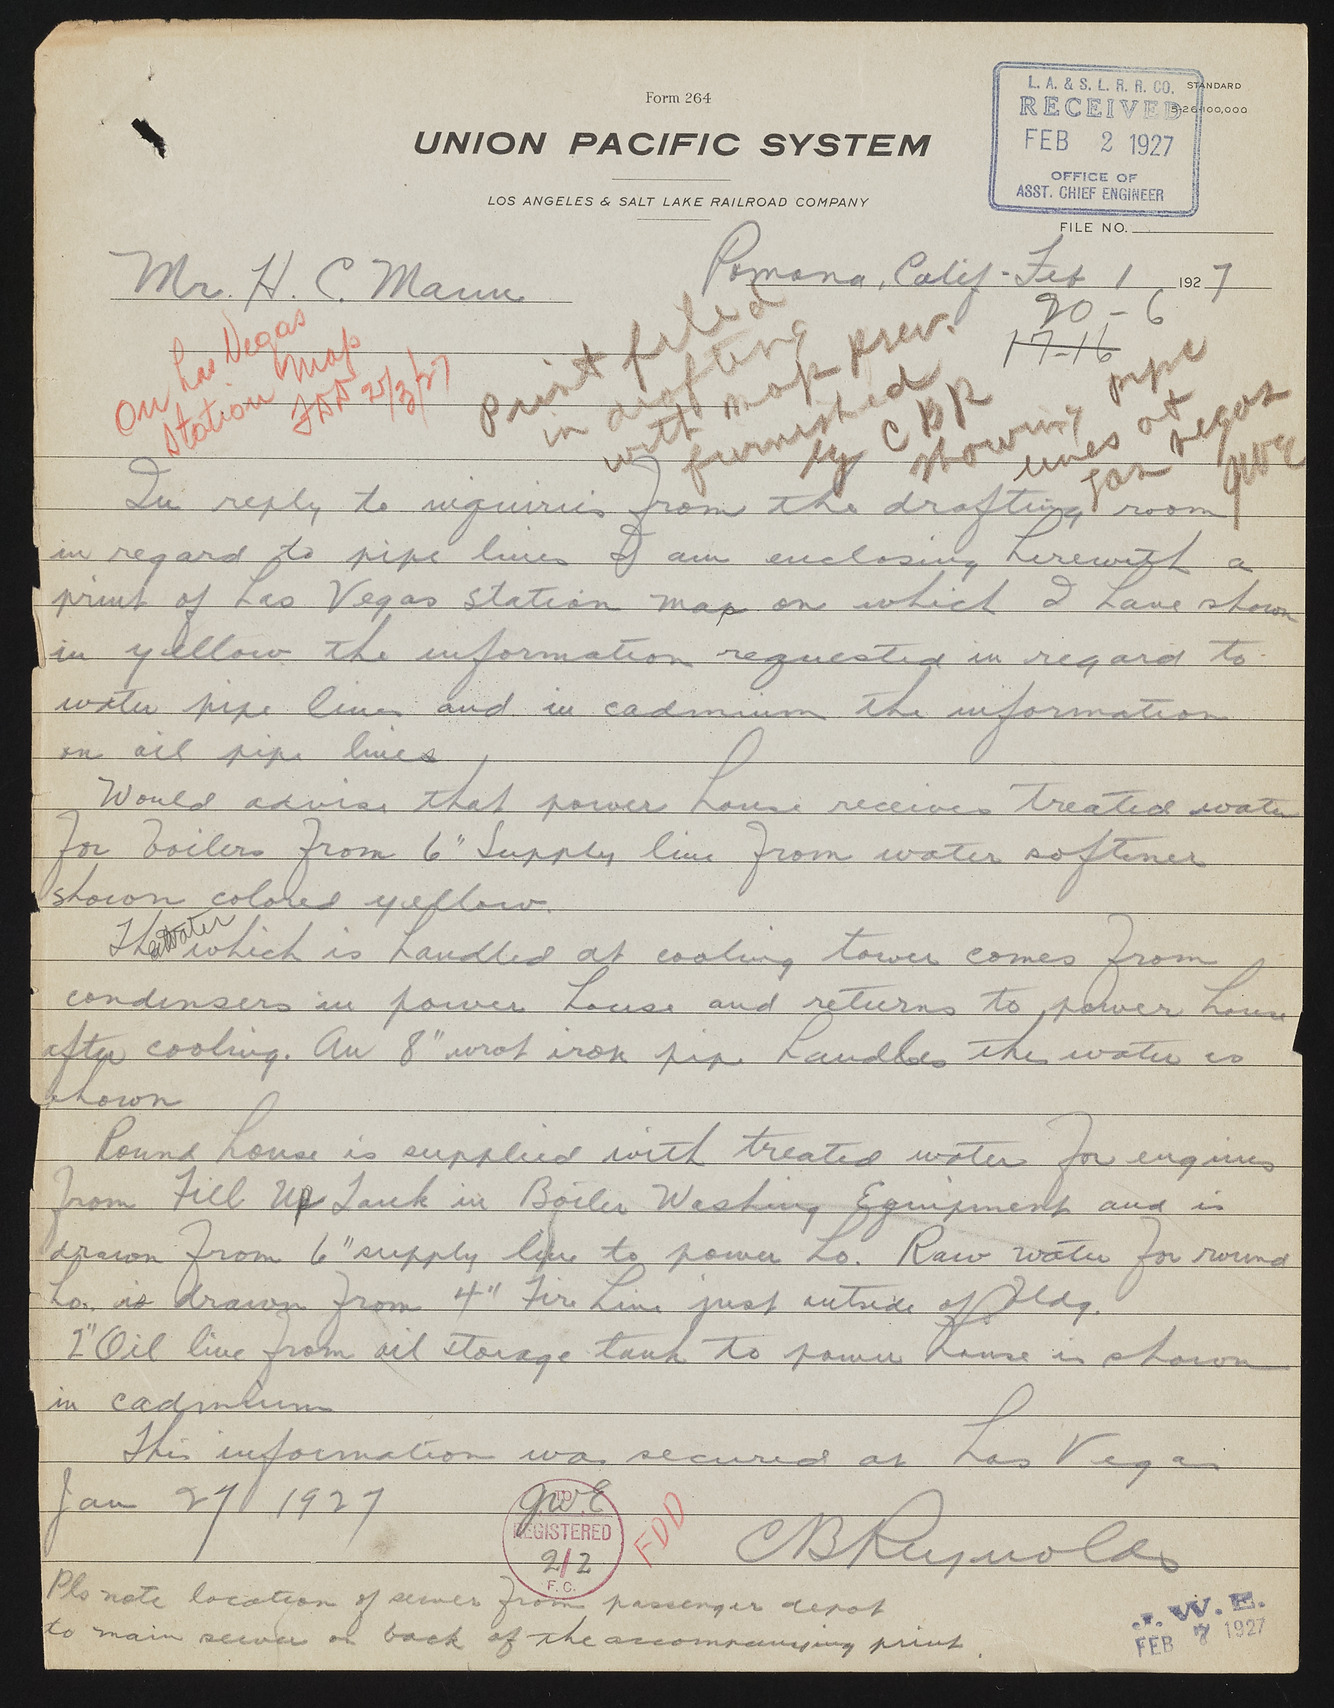 Form 264
STANDARD
5-26-100,000
L. A. & S. L. R. R. CO.
RECEIVED
FEB 2 1927
OFFICE OF
ASST. CHIEF ENGINEER
UNION PACIFIC SYSTEM
LOS ANGELES & SALT LAKE RAILROAD COMPANY
FILE NO.
Mr. H. C. Mann
Pomona, Calif - Feb 1 1927
20-6
17-16
On Las Vegas
Station Map
FDD 2/3/27
Print filed
in drafting
with map prev.
furnished
by CBR
showing pipe
lines at
Las Vegas
JWE
In reply to inquiries from the drafting room
in regard to pipe lines I am enclosing herewith a
print of Las Vegas Station map on which I have shown
in yellow the information requested in regard to
water pipe lines and in cadmium the information
on oil pipe lines
Would advise that power house receives treated water
for boilers from 6" Supply line from water softener
shown colored yellow.
The water which is handled at cooling tower comes from
condensers in power house and returns to power house
after cooling. An 8" wrot iron pipe handles the water as
shown
Round house is supplied with treated water for engines
from Fill Up Tank in Boiler Washing Equipment and is
drawn from 6" supply line to power ho. Raw water for round
ho. is drawn from 4" Fire Line just outside of bldg.
2" Oil line from oil storage tank to power house is shown
in cadmium
This information was secured at Las Vegas
Jan 27 1927
J.W.E
TO
REGISTERED
2/2
F. C.
FDD
CBReynolds
Pls note location of sewer from passenger depot
to main sewer on back of the accompanying print.
J. W. E.
FEB 7 1927